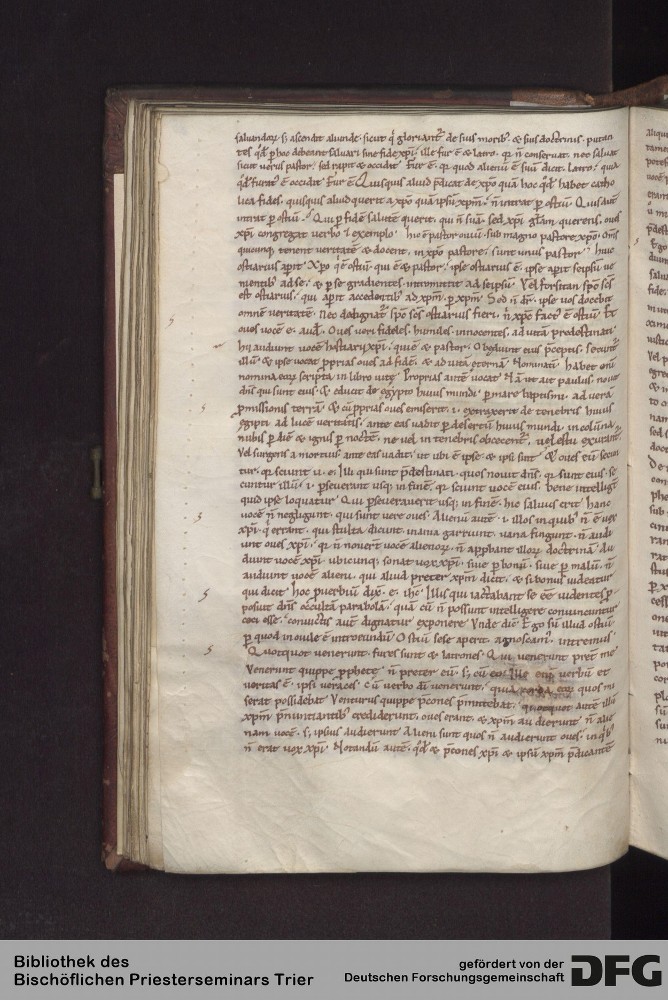 saluandoꝝ s; ascendit aliunde. sicut q̇ gloriant᷑ de suis morib᷒ & suis doctrinis. putan
tes qd̓ p hoc debeant saluari sine fide xp̄i. ille fur ē & latro. qr̄ n̄ conseruat. nec saluat
sicut uerus pastor. sed rapit & occidit Fur ē. qr̄ quod alienū ē suū dicit. Latro. quia
qd̓ furat᷑ & occidit Fur ē Quisquis aliud p̄dicat de xp̄o quā hoc qd̓ habet catho
lica fides. quisquis aliud querit a xp̄o quā ipsū xp̄m. n̄ intrat p ostiū. Quis aūt
intrat p ostiū. Qui p fidē salutē querit. qui n̄ suā. sed xp̄i gl̄am querens. oues
xp̄i congregat uerbo ł exemplo hic ē pastor ouiū. sub magno pastore xp̄o. Om̄s
quicunq; tenent ueritatē & docent. in xp̄o pastore. sunt unus pastor. huic
ostiarius aperit Xp̄o qͥ ē ostiū. qui ē & pastor. ipse ostiarius ē. ipse aperit seipsū ue
nientib᷒ ad se. & p se gradientes intromittit ad seipsū. Vel forsitan sp̄c sc̄s
est ostiarius. qui aperit accedentib᷒ ad xp̄m. p xp̄m Sed n̄ dr̄. ipse uos docebit
omnē ueritatē. Nec dedignat᷑ sp̄c sc̄s ostiarius fieri. n̄ xp̄c fact᷒ ē ostiū Et
oues uocē e. aud̄. Oues ueri fideles. humiles. innocentes. ad uitā predestinati
hii audiunt uocē hostiarii xp̄i. qui ē & pastor. Obediunt eius p̄ceptis. secunt᷑
illū. & ipse uocat pprias oues ad fidē. & ad uitā eternā Nominatī. habet om̄i
nomina eoꝝ scripta in libro uitę Proprias autē uocat Nā ut ait paulus. nouit
dn̄s qui sunt eius. & educit de egypto huius mundi. p mare baptismi. ad uerā
pmissionis terrā. & cū pprias oues emiserit. i. extraxerit de tenebris huius
egipti ad lucē ueritatis. ante eas uadit p desertū huius mundi. in colūna
nubis p diē & ignis p noctē. ne uel in tenebris obcecent᷑. uel estu exurant᷑.
Vel surgens a mortuis ante eas uadit. ut ubi ē ipse & ipsi sint & oues eū secun
tur. qr̄ sciunt u. e. Illi qui sunt p̄destinati. quos nouit dn̄s. qr̄ sunt eius. se
cuntur illū. i. pseuerant usq; in finē. qr̄ sciunt uocē eius. bene intelligt̄
quid ipse loquatur Qui pseuerauerit usq; in finē. hic saluus erit hanc
uocē n̄ negligunt. qui sunt uere oues Alienū autē. i. illos in quib᷒ n̄ ē uox
xp̄i. qͥ errant. qui stulta dicunt. inania garriunt. uana fingunt. n̄ audi
unt oues xp̄i. qr̄ n̄ nouert̄ uocē alienoꝝ. n̄ apphant illoꝝ doctrinā Au
diunt uocē xp̄i. ubicunq; sonat uox xp̄i. siue p bonū. siue p malū. n̄
audiunt uocē alieni. qui aliud preter xp̄m dicit. & si bonus uideatur
qui dicit hoc puerbiū dix̄. e. ih̄c Illis qui iactabant se eē uidentes p
posuit dn̄s occultā parabolā. quā cū n̄ possint intelligere conuincuntur
ceci esse. conuictis autē dignatur exponere Vnde dic̄ Ego sū illud ostiū
p quod in ouile ē introeundū Ostiū sese aperit. agnoscam᷒. intrem᷒
Quotquot uenerunt. fures sunt & latrones. Qui uenerunt pret̄ me
Venerunt quippe pphete n̄ preter eū. s; cū eo Ille erat uerbū et
ueritas ē. ipsi ueraces. cū uerbo dī uenerunt. quia corda eoꝝ quos mi
serat possidebat Venturus quippe p̄cones p̄mittebat. quotquot autē illū
xp̄m p̄nuntiantib᷒ crediderunt. oues erant. & xp̄m audierunt n̄ alie
nam uocē. s; ipsius audierunt Alieni sunt quos n̄ audierunt oues. in qͥb᷒
n̄ erat uox xp̄i. Notandū autē. qd̓ & p̄cones xp̄i & ipsū xp̄m p̄dicantē
Bibliothek des
Bischöflichen Priesterseminars Trier
gefördert von der
Deutschen Forschungsgemeinschaft
DFG